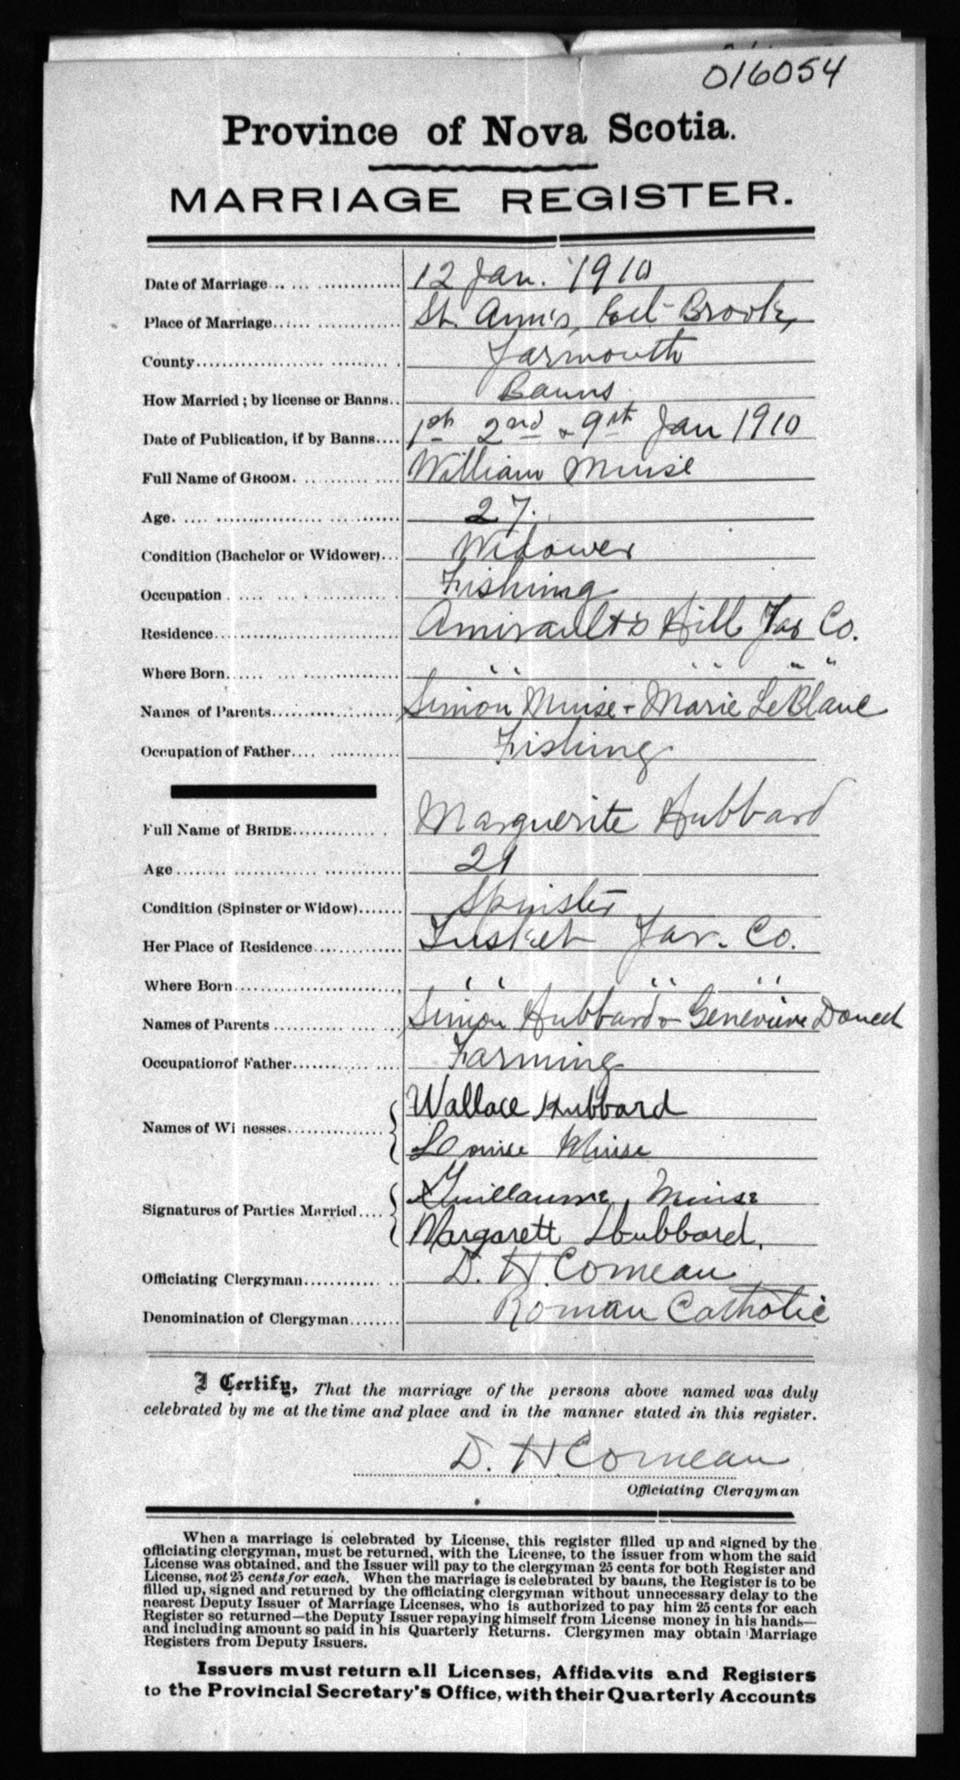 016054
Province of Nova Scotia.
MARRIAGE REGISTER.
Date of Marriage 12 Jan. 1910
Place of Marriage St. Ann's, Eel-Brook,
County Yarmouth
How Married; by license or Banns Banns
Date of Publication, if by Banns 1st 2nd & 9th Jan 1910
Full Name of GROOM William Muise
Age 27.
Condition (Bachelor or Widower) Widower
Occupation Fishing
Residence Amirault's Hill Yar Co.
Where Born " " " "
Names of Parents Simon Muise + Marie LeBlanc
Occupation of Father Fishing
Full Name of BRIDE Marguerite Hubbard
Age 21
Condition (Spinster or Widow) Spinster
Her Place of Residence Tusket Yar. Co.
Where Born " " "
Names of Parents Simon Hubbard & Genevieve Doucet
Occupation of Father Farming
Names of Wi nesses Wallace Hubbard
Louise Muise
Signatures of Parties Married Guillaume Muise
Margarett Hubbard.
Officiating Clergyman D. H. Comeau
Denomination of Clergyman Roman Catholic
I Certify, That the marriage of the persons above named was duly
celebrated by me at the time and place and in the manner stated in this register.
D. H Comeau
Officiating Clergyman
When a marriage is celebrated by License, this register filled up and signed by the
officiating clergyman, must be returned, with the License, to the issuer from whom the said
License was obtained, and the Issuer will pay to the clergyman 25 cents for both Register and
License, not 25 cents for each. When the marriage is celebrated by banns, the Register is to be
filled up, signed and returned by the officiating clergyman without unnecessary delay to the
nearest Deputy Issuer of Marriage Licenses, who is authorized to pay him 25 cents for each
Register so returned—the Deputy Issuer repaying himself from License money in his hands—
and including amount so paid in his Quarterly Returns. Clergymen may obtain Marriage
Registers from Deputy Issuers.
Issuers must return all Licenses, Affidavits and Registers
to the Provincial Secretary's Office, with their Quarterly Accounts